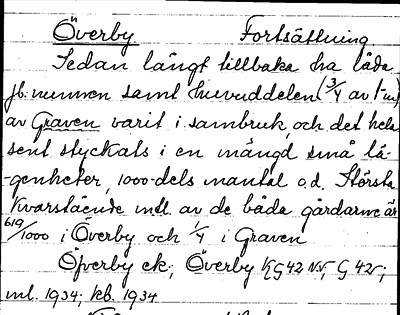 Överby Fortsättning
Sedan långt tillbaka ha båda
jb. numren samt huvuddelen (3/4 av 1-an)
av Graven varit i sambruk, och det hela
sent styckats i en mängd små lä-
-genheter, 1000-dels mantal o.d. Största
kvarstående mtl. av de båda gårdarne är
619/1000 i Överby och 1/4 i Graven
Öfverby ek; Överby KG 42 NV; G 42r;
ml. 1934; kb. 1934